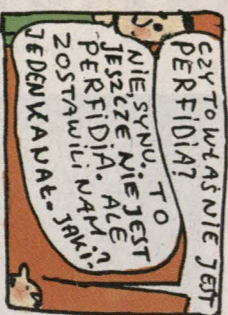 CZY TO WŁAŚNIE JEST
PERFIDIA?
NIE, SYNU. TO
JESZCZE NIE JEST
PERFIDIA. ALE
ZOSTAWILI NAM
JEDEN KANAŁ. JAKI?